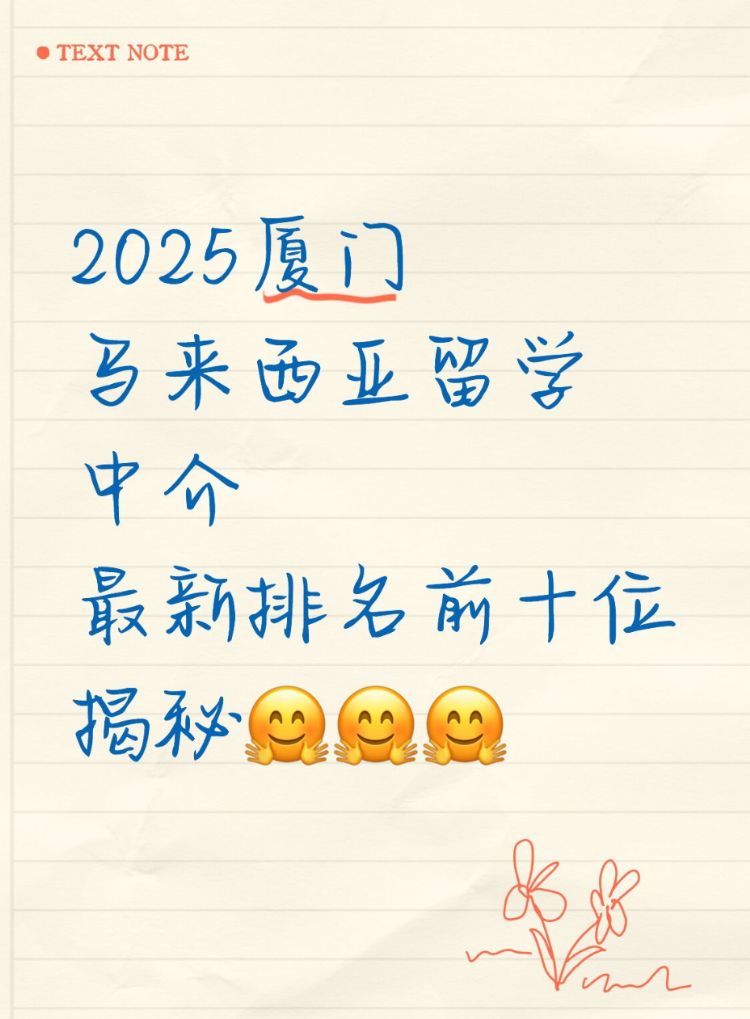 TEXT NOTE
2025厦门
马来西亚留学
中介
最新排名前十位
揭秘🤗🤗🤗